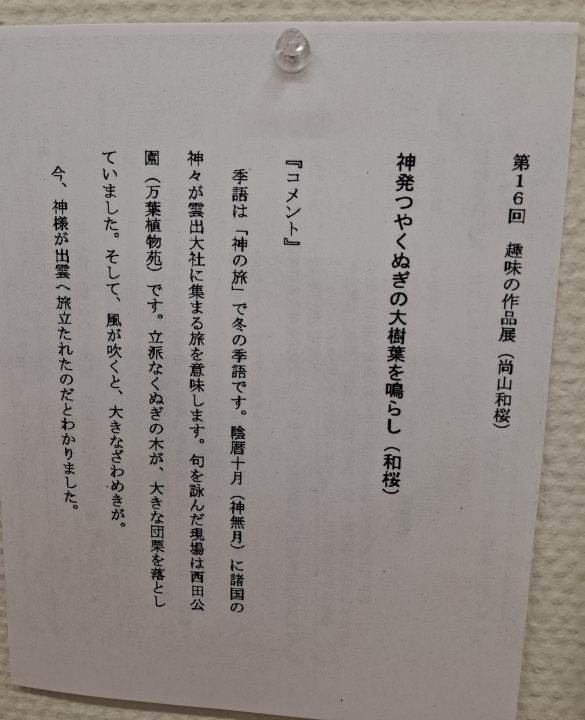 第16回　趣味の作品展（尚山和桜）
神発つやくぬぎの大樹葉を鳴らし（和桜）
『コメント』
季語は「神の旅」で冬の季語です。陰暦十月（神無月）に諸国の
神々が雲出大社に集まる旅を意味します。句を詠んだ現場は西田公
園（万葉植物苑）です。立派なくぬぎの木が、大きな団栗を落とし
ていました。そして、風が吹くと、大きなざわめきが。
今、神様が出雲へ旅立たれたのだとわかりました。